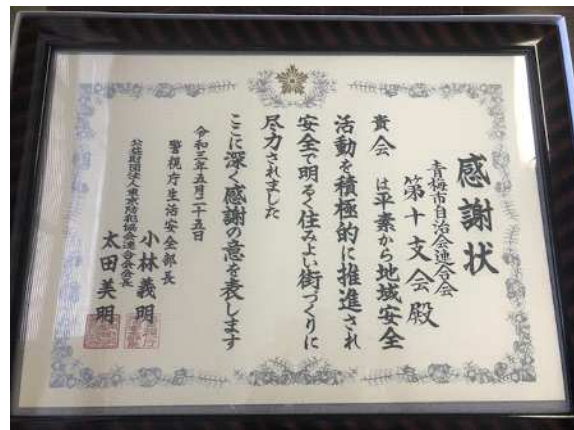 感謝状
青梅市自治会連合会
第十支会殿
貴会は平素から地域安全
活動を積極的に推進され
安全で明るく住みよい街づくりに
尽力されました
ここに深く感謝の意を表します
令和三年五月二十五日
警視庁生活安全部長
小林義明
公益財団法人東京防犯協会連合会会長
太田美明